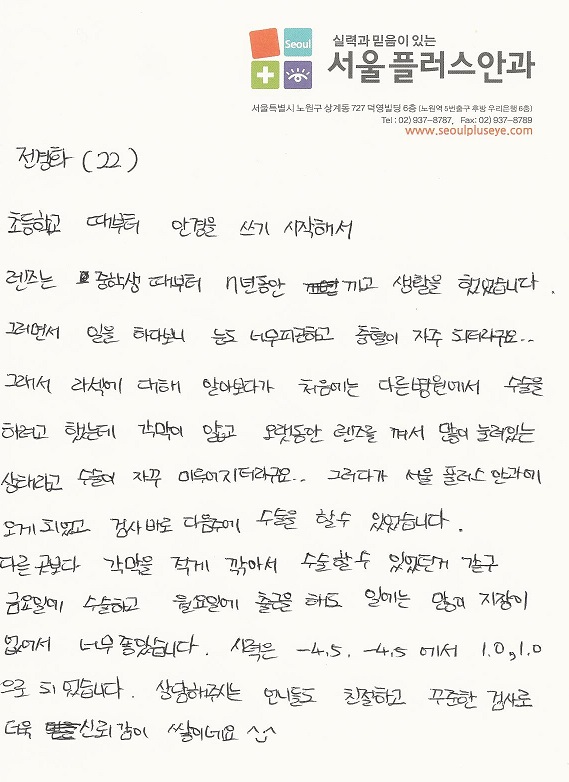 Seoul
실력과 믿음이 있는
서울플러스안과
서울특별시 노원구 상계동 727 덕영빌딩 6층 (노원역 5번출구 후방 우리은행 6층)
Tel : 02) 937-8787, Fax: 02) 937-8789
www.seoulpluseye.com
전경화 (22)
초등학교 때부터 안경을 쓰기 시작해서
렌즈는 중학생 때부터 n년동안 끼고 생활을 했었습니다.
그러면서 일을 하다보니 눈도 너무피곤하고 충혈이 자주 되더라구요..
그래서 라섹에 대해 알아보다가 처음에는 다른병원에서 수술을
하려고 했는데 각막이 얇고 오랫동안 렌즈를 껴서 많이 눌려있는
상태라고 수술이 자꾸 미루어지더라구요.. 그러다가 서울 플러스 안과에
오게 되었고 검사 바로 다음주에 수술을 할 수 있었습니다.
다른 곳보다 각막을 적게 깎아서 수술할 수 있었던거 같구
금요일에 수술하고 월요일에 출근을 해도 일에는 많이 지장이
없어서 너무 좋았습니다. 시력은 -4.5. -4.5 에서 1.0, 1.0
으로 되었습니다. 상담해주시는 언니들도 친절하고 꾸준한 검사로
더욱 신뢰감이 쌓이네요 ^_^